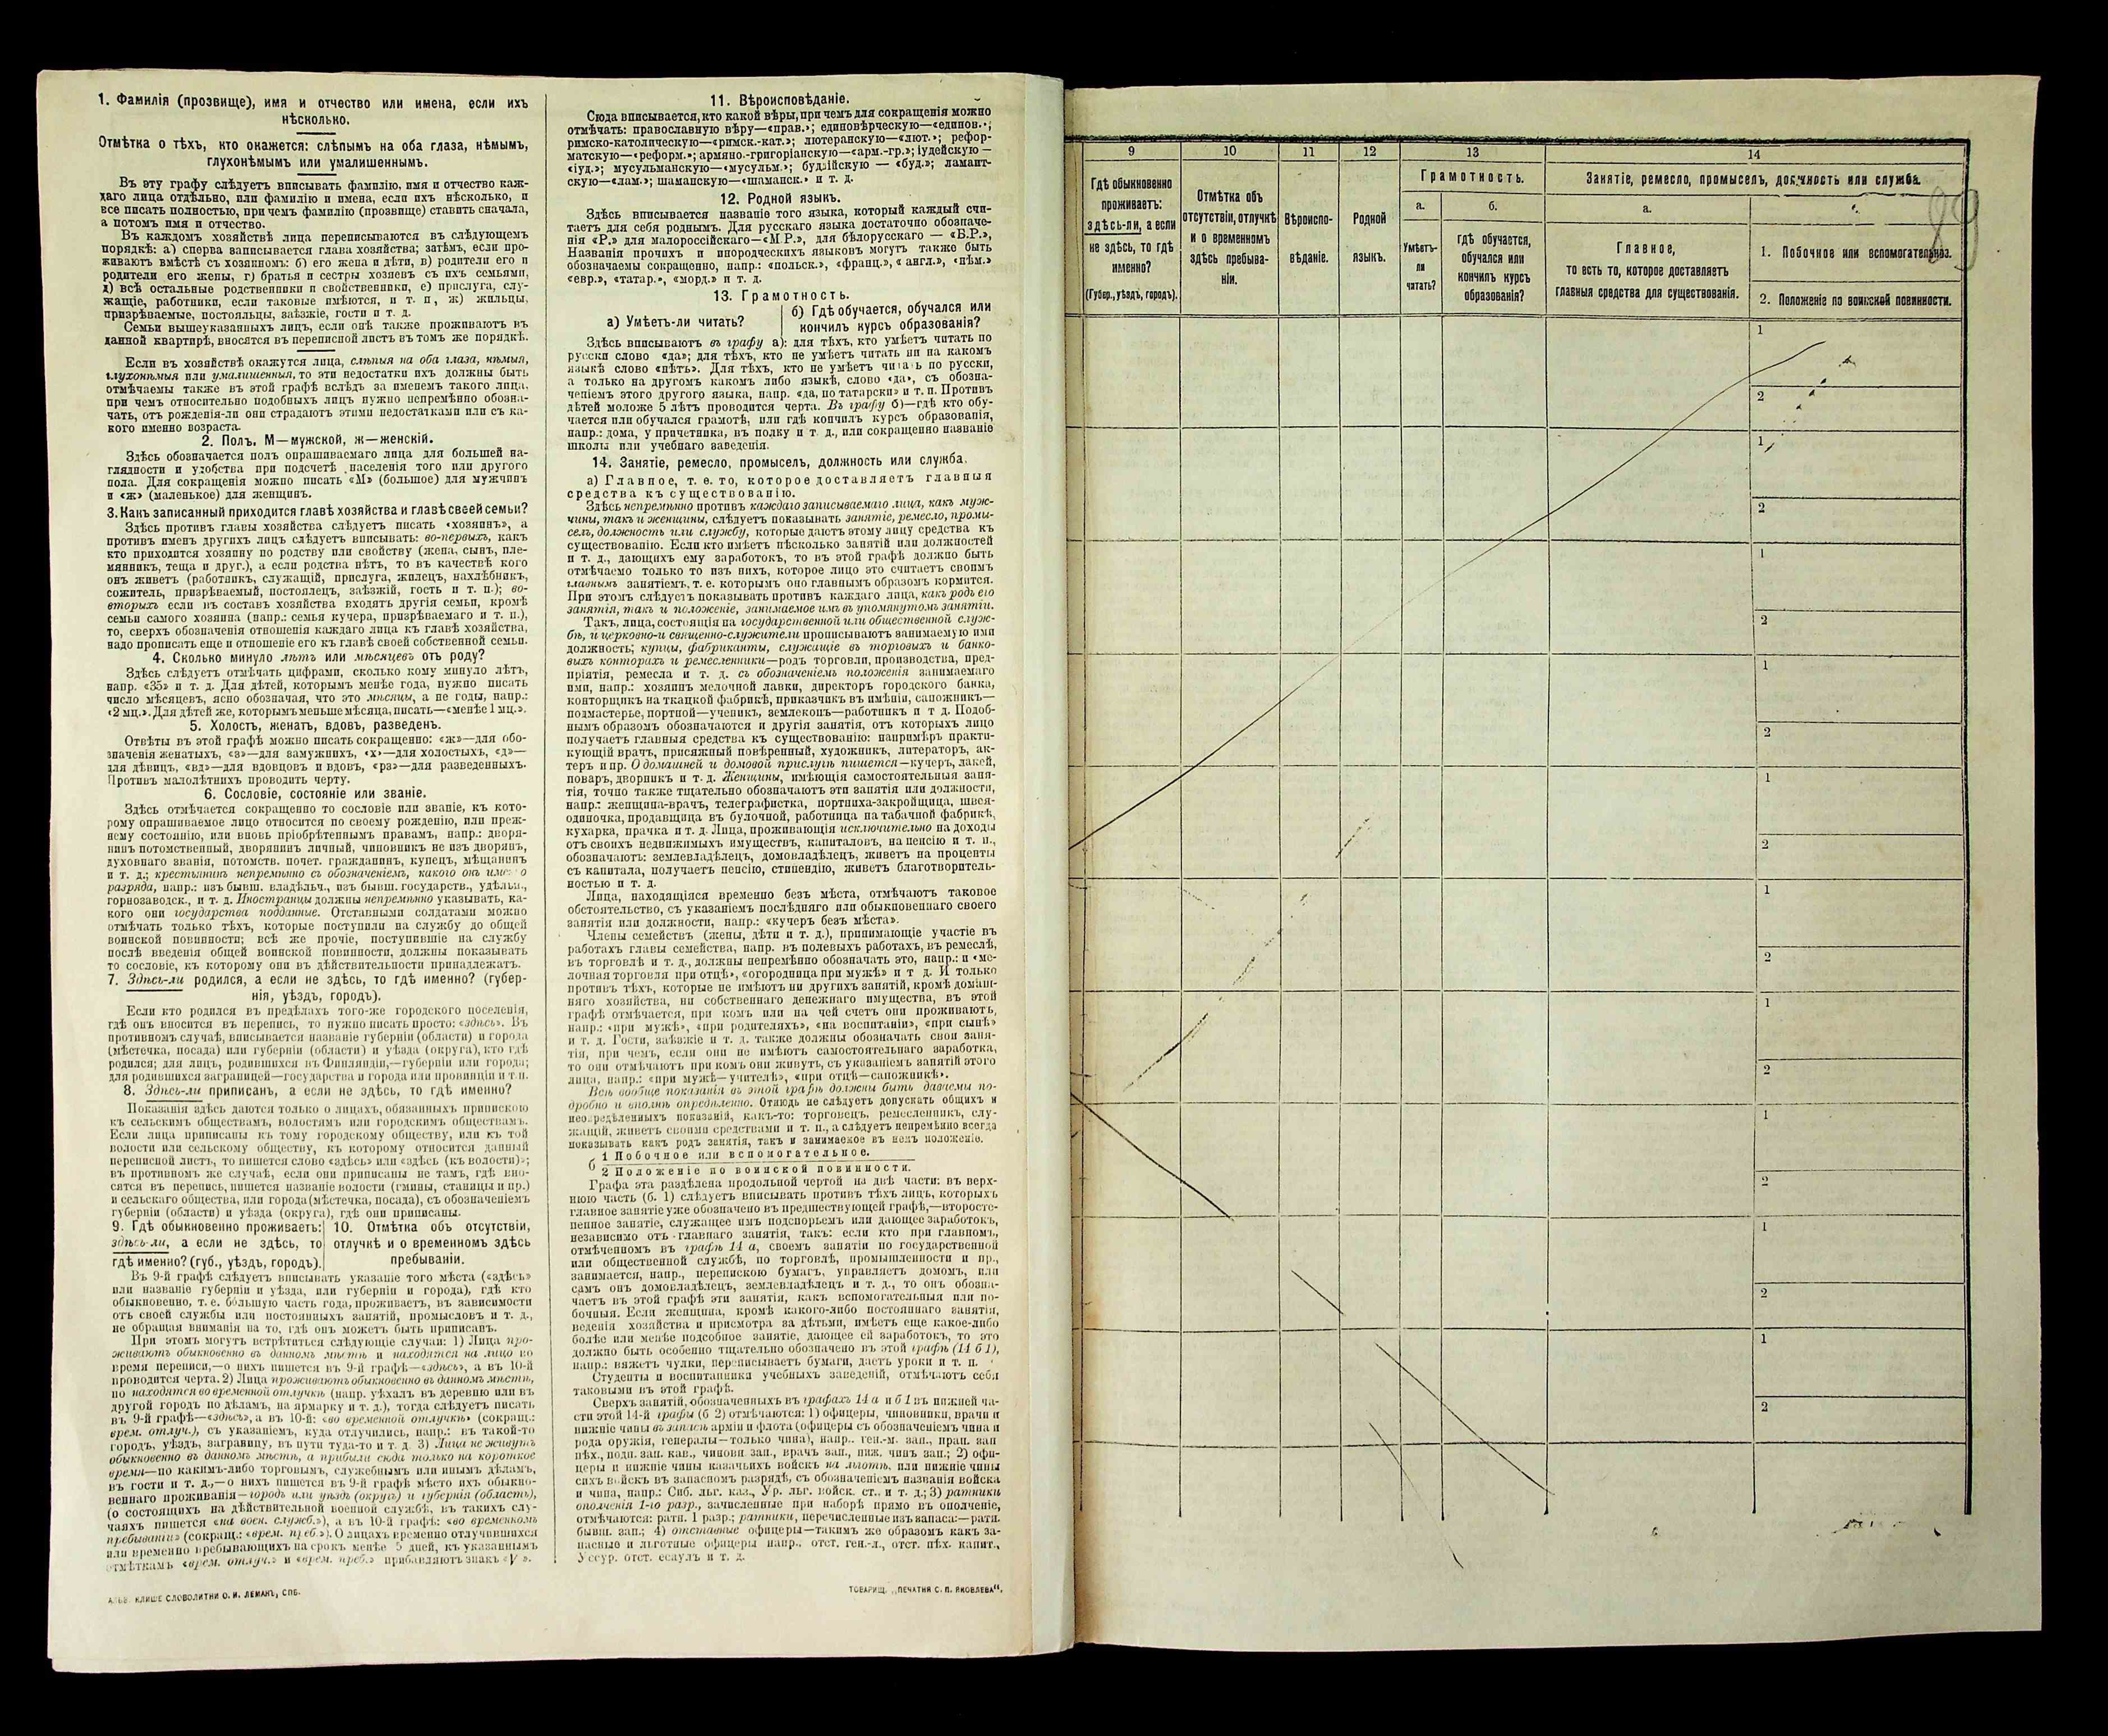 1. Фамилія (прозвище), имя и отчество или имена, если ихъ
нѣсколько.
Отмѣтка о тѣхъ, кто окажется: слѣпымъ на оба глаза, нѣмымъ,
глухонѣмымъ или умалишеннымъ.
Въ эту графу слѣдуетъ вписывать фамилію, имя и отчество каж-
даго лица отдѣльно, или фамилію и имена, если ихъ нѣсколько, и
все писать полностью, при чемъ фамилію (прозвище) ставить сначала,
а потомъ имя и отчество.
Въ каждомъ хозяйствѣ лица переписываются въ слѣдующемъ
порядкѣ: а) сперва записывается глава хозяйства; затѣмъ, если про-
живаютъ вмѣстѣ съ хозяиномъ: б) его жена и дѣти, в) родители его и
родители его жены, г) братья и сестры хозяевъ съ ихъ семьями,
д) всѣ остальные родственники и свойственники, е) прислуга, слу-
жащіе, работники, если таковые имѣются, и т. п, ж) жильцы,
призрѣваемые, постояльцы, заѣзжіе, гости и т. д.
Семьи вышеуказанныхъ лицъ, если онѣ также проживаютъ въ
данной квартирѣ, вносятся въ переписной листъ въ томъ же порядкѣ.
Если въ хозяйствѣ окажутся лица, слѣпыя на оба глаза, нѣмыя,
глухонѣмыя или умалишенныя, то эти недостатки ихъ должны быть
отмѣчаемы также въ этой графѣ вслѣдъ за именемъ такого лица,
при чемъ относительно подобныхъ лицъ нужно непремѣнно обозна-
чать, отъ рожденія-ли они страдаютъ этими недостатками или съ ка-
кого именно возраста.
2. Полъ, М—мужской, ж—женскій.
Здѣсь обозначается полъ опрашиваемаго лица для большей на-
глядности и удобства при подсчетѣ населенія того или другого
пола. Для сокращенія можно писать «М» (большое) для мужчинъ
и «ж» (маленькое) для женщинъ.
3. Какъ записанный приходится главѣ хозяйства и главѣ своей семьи?
Здѣсь противъ главы хозяйства слѣдуетъ писать «хозяинъ», а
противъ именъ другихъ лицъ слѣдуетъ вписывать: во-первыхъ, какъ
кто приходится хозяину по родству или свойству (жена, сынъ, пле-
мянникъ, теща и друг.), а если родства нѣтъ, то въ качествѣ кого
онъ живетъ (работникъ, служащій, прислуга, жилецъ, нахлѣбникъ,
сожитель, призрѣваемый, постоялецъ, заѣзжій, гость и т. п.); во-
вторыхъ если въ составъ хозяйства входятъ другія семьи, кромѣ
семьи самого хозяина (напр.: семья кучера, призрѣваемаго и т. п.),
то, сверхъ обозначенія отношенія каждаго лица къ главѣ хозяйства,
надо прописать еще и отношеніе его къ главѣ своей собственной семьи.
4. Сколько минуло лѣтъ или мѣсяцевъ отъ роду?
Здѣсь слѣдуетъ отмѣчать цифрами, сколько кому минуло лѣтъ,
напр. «35» и т. д. Для дѣтей, которымъ менѣе года, нужно писать
число мѣсяцевъ, ясно обозначая, что это мѣсяцы, а не годы, напр.:
«2 мц.». Для дѣтей же, которымъ меньше мѣсяца, писать—«менѣе 1 мц.».
5. Холостъ, женатъ, вдовъ, разведенъ.
Отвѣты въ этой графѣ можно писать сокращенно: «ж»—для обо-
значенія женатыхъ, «з»—для замужнихъ, «х»—для холостыхъ, «д»—
для дѣвицъ, «вд»—для вдовцовъ и вдовъ, «рз»—для разведенныхъ.
Противъ малолѣтнихъ проводить черту.
6. Сословіе, состояніе или званіе.
Здѣсь отмѣчается сокращенно то сословіе или званіе, къ кото-
рому опрашиваемое лицо относится по своему рожденію, или преж-
нему состоянію, или вновь пріобрѣтеннымъ правамъ, напр.: дворя-
нинъ потомственный, дворянинъ личный, чиновникъ не изъ дворянъ,
духовнаго званія, потомств. почет. гражданинъ, купецъ, мѣщанинъ
и т. д.; крестьянинъ непремѣнно съ обозначеніемъ, какого онъ именно
разряда, напр.: изъ бывш. владѣльч., изъ бывш. государств., удѣльн.,
горнозаводск., и т. д. Иностранцы должны непремѣнно указывать, ка-
кого они государства подданные. Отставными солдатами можно
отмѣчать только тѣхъ, которые поступили на службу до общей
воинской повинности; всѣ же прочіе, поступившіе на службу
послѣ введенія общей воинской повинности, должны показывать
то сословіе, къ которому они въ дѣйствительности принадлежатъ.
7. Здѣсь-ли родился, а если не здѣсь, то гдѣ именно? (губер-
нія, уѣздъ, городъ).
Если кто родился въ предѣлахъ того-же городского поселенія,
гдѣ онъ вносится въ перепись, то нужно писать просто: «здѣсь». Въ
противномъ случаѣ, вписывается названіе губерніи (области) и города
(мѣстечка, посада) или губерніи (области) и уѣзда (округа), кто гдѣ
родился; для лицъ, родившихся въ Финляндіи,—губерніи или города;
для родившихся заграницей—государства и города или провинціи и т п.
8. Здѣсь-ли приписанъ, а если не здѣсь, то гдѣ именно?
Показанія здѣсь даются только о лицахъ, обязанныхъ припискою
къ сельскимъ обществамъ, волостямъ или городскимъ обществамъ.
Если лица приписаны къ тому городскому обществу, или къ той
волости или сельскому обществу, къ которому относится данный
переписной листъ, то пишется слово «здѣсь» или «здѣсь (къ волости)»;
въ противномъ же случаѣ, если они приписаны не тамъ, гдѣ вно-
сятся въ перепись, пишется названіе волости (гмины, станицы и пр.)
и сельскаго общества, или города (мѣстечка, посада), съ обозначеніемъ
губерніи (области) и уѣзда (округа), гдѣ они приписаны.
9. Гдѣ обыкновенно проживаетъ:
здѣсь-ли, а если не здѣсь, то
гдѣ именно? (губ., уѣздъ, городъ).
10. Отмѣтка объ отсутствіи,
отлучкѣ и о временномъ здѣсь
пребываніи.
Въ 9-й графѣ слѣдуетъ вписывать указаніе того мѣста («здѣсь»
или названіе губерніи и уѣзда, или губерніи и города), гдѣ кто
обыкновенно, т. е. большую часть года, проживаетъ, въ зависимости
отъ своей службы или постоянныхъ занятій, промысловъ и т. д.,
не обращая вниманія на то, гдѣ онъ можетъ быть приписанъ.
При этомъ могутъ встрѣтиться слѣдующіе случаи: 1) Лица про-
живаютъ обыкновенно въ данномъ мѣстѣ и находятся на лицо во
время переписи,—о нихъ пишется въ 9-й графѣ—«здѣсь», а въ 10-й
проводится черта. 2) Лица проживаютъ обыкновенно въ данномъ мѣстѣ,
но находятся во временной отлучкѣ (напр. уѣхалъ въ деревню или въ
другой городъ по дѣламъ, на ярмарку и т. д.), тогда слѣдуетъ писать
въ 9-й графѣ—«здѣсь», а въ 10-й: «во временной отлучкѣ» (сокращ.:
врем. отлуч.), съ указаніемъ, куда отлучились, напр.: въ такой-то
городъ, уѣздъ, заграницу, въ пути туда-то и т. д. 3) Лица не живутъ
обыкновенно въ данномъ мѣстѣ, а прибыли сюда только на короткое
время—по какимъ-либо торговымъ, служебнымъ или инымъ дѣламъ,
въ гости и т. д.,—о нихъ пишется въ 9-й графѣ мѣсто ихъ обыкно-
веннаго проживанія—городъ или уѣздъ (округъ) и губернія (область),
(о состоящихъ на дѣйствительной военной службѣ, въ такихъ слу-
чаяхъ пишется «на воен. служб.»), а въ 10-й графѣ: «во временномъ
пребываніи» (сокращ.: «врем. преб.»). О лицахъ временно отлучившихся
или временно пребывающихъ на срокъ менѣе 5 дней, къ указаннымъ
отмѣткамъ «врем. отлуч.» и «врем. преб.» прибавляютъ знакъ «V».
КЛИШЕ СЛОВОЛИТНИ О. И. ЛЕМАНЪ, СПБ.
11. Вѣроисповѣданіе.
Сюда вписывается, кто какой вѣры, при чемъ для сокращенія можно
отмѣчать: православную вѣру—«прав.»; единовѣрческую—«единов.»;
римско-католическую—«римск.-кат.»; лютеранскую—«лют.»; рефор-
матскую—«реформ.»; армяно.-григоріанскую—«арм.-гр.»; іудейскую—
«іуд.»; мусульманскую—«мусульм.»; буддійскую — «буд.»; ламаит-
скую—«лам.»; шаманскую—«шаманск.» и т. д.
12. Родной языкъ.
Здѣсь вписывается названіе того языка, который каждый счи-
таетъ для себя роднымъ. Для русскаго языка достаточно обозначе-
нія «Р.» для малороссійскаго—«М.Р.», для бѣлорусскаго — «Б.Р.»,
Названія прочихъ и инородческихъ языковъ могутъ также быть
обозначаемы сокращенно, напр.: «польск.», «франц.», «англ.», «нѣм.»
«евр.», «татар.», «морд.» и т. д.
13. Грамотность.
а) Умѣетъ-ли читать?
б) Гдѣ обучается, обучался или
кончилъ курсъ образованія?
Здѣсь вписываютъ въ графу а): для тѣхъ, кто умѣетъ читать по
русски слово «да»; для тѣхъ, кто не умѣетъ читать ни на какомъ
языкѣ слово «нѣтъ». Для тѣхъ, кто не умѣетъ читать по русски,
а только на другомъ какомъ либо языкѣ, слово «да», съ обозна-
ченіемъ этого другого языка, напр. «да, по татарски» и т. п. Противъ
дѣтей моложе 5 лѣтъ проводится черта. Въ графу б)—гдѣ кто обу-
чается или обучался грамотѣ, или гдѣ кончилъ курсъ образованія,
напр.: дома, у причетника, въ полку и т. д., или сокращенно названіе
школы или учебнаго заведенія.
14. Занятіе, ремесло, промыселъ, должность или служба.
а) Главное, т. е. то, которое доставляетъ главныя
средства къ существованію.
Здѣсь непремѣнно противъ каждаго записываемаго лица, какъ муж-
чины, такъ и женщины, слѣдуетъ показывать занятіе, ремесло, промы-
селъ, должность или службу, которые даютъ этому лицу средства къ
существованію. Если кто имѣетъ нѣсколько занятій или должностей
и т. д., дающихъ ему заработокъ, то въ этой графѣ должно быть
отмѣчаемо только то изъ нихъ, которое лицо это считаетъ своимъ
главнымъ занятіемъ, т. е. которымъ оно главнымъ образомъ кормится.
При этомъ слѣдуетъ показывать противъ каждаго лица, какъ родъ его
занятія, такъ и положеніе, занимаемое имъ въ упомянутомъ занятіи.
Такъ, лица, состоящія на государственной или общественной служ-
бѣ, и церковно-и священно-служители прописываютъ занимаемую ими
должность; купцы, фабриканты, служащіе въ торговыхъ и банко-
выхъ конторахъ и ремесленники—родъ торговли, производства, пред-
пріятія, ремесла и т. д. съ обозначеніемъ положенія занимаемаго
ими, напр.: хозяинъ мелочной лавки, директоръ городского банка,
конторщикъ на ткацкой фабрикѣ, приказчикъ въ имѣніи, сапожникъ—
подмастерье, портной—ученикъ, землекопъ—работникъ и т д. Подоб-
нымъ образомъ обозначаются и другія занятія, отъ которыхъ лицо
получаетъ главныя средства къ существованію: напримѣръ практи-
кующій врачъ, присяжный повѣренный, художникъ, литераторъ, ак-
теръ и пр. О домашней и домовой прислугѣ пишется—кучеръ, лакей,
поваръ, дворникъ и т. д. Женщины, имѣющія самостоятельныя заня-
тія, точно также тщательно обозначаютъ эти занятія или должности,
напр.: женщина-врачъ, телеграфистка, портниха-закройщица, швея-
одиночка, продавщица въ булочной, работница на табачной фабрикѣ,
кухарка, прачка и т. д. Лица, проживающія исключительно на доходы
отъ своихъ недвижимыхъ имуществъ, капиталовъ, на пенсію и т. п.,
обозначаютъ: землевладѣлецъ, домовладѣлецъ, живетъ на проценты
съ капитала, получаетъ пенсію, стипендію, живетъ благотворитель-
ностью и т. д.
Лица, находящіяся временно безъ мѣста, отмѣчаютъ таковое
обстоятельство, съ указаніемъ послѣдняго или обыкновеннаго своего
занятія или должности, напр.: «кучеръ безъ мѣста».
Члены семействъ (жены, дѣти и т. д.), принимающіе участіе въ
работахъ главы семейства, напр. въ полевыхъ работахъ, въ ремеслѣ,
въ торговлѣ и т. д., должны непремѣнно обозначать это, напр.: и «ме-
лочная торговля при отцѣ», «огородница при мужѣ» и т д. И только
противъ тѣхъ, которые не имѣютъ ни другихъ занятій, кромѣ домаш-
няго хозяйства, ни собственнаго денежнаго имущества, въ этой
графѣ отмѣчается, при комъ или на чей счетъ они проживаютъ,
напр.: «при мужѣ», «при родителяхъ», «на воспитаніи», «при сынѣ»
и т. д. Гости, заѣзжіе и т. д. также должны обозначать свои заня-
тія, при чемъ, если они не имѣютъ самостоятельнаго заработка,
то они отмѣчаютъ при комъ они живутъ, съ указаніемъ занятій этого
лица, напр.: «при мужѣ—учителѣ», «при отцѣ—сапожникѣ».
Всѣ вообще показанія въ этой графѣ должны быть даваемы по-
дробно и вполнѣ опредѣленно. Отнюдь не слѣдуетъ допускать общихъ и
неопредѣленныхъ показаній, какъ-то: торговецъ, ремесленникъ, слу-
жащій, живетъ своими средствами и т. п., а слѣдуетъ непремѣнно всегда
показывать какъ родъ занятія, такъ и занимаемое въ немъ положеніе.
б
1 Побочное или вспомогательное.
2 Положеніе по воинской повинности.
Графа эта раздѣлена продольной чертой на двѣ части: въ верх-
нюю часть (б. 1) слѣдуетъ вписывать противъ тѣхъ лицъ, которыхъ
главное занятіе уже обозначено въ предшествующей графѣ,—второсте-
пенное занятіе, служащее имъ подспорьемъ или дающее заработокъ,
независимо отъ главнаго занятія, такъ: если кто при главномъ,
отмѣченномъ въ графѣ 14 а, своемъ занятіи по государственной
или общественной службѣ, по торговлѣ, промышленности и пр.,
занимается, напр., перепискою бумагъ, управляетъ домомъ, или
самъ онъ домовладѣлецъ, землевладѣлецъ и т. д., то онъ обозна-
чаетъ въ этой графѣ эти занятія, какъ вспомогательныя или по-
бочныя. Если женщина, кромѣ какого-либо постояннаго занятія,
веденія хозяйства и присмотра за дѣтьми, имѣетъ еще какое-либо
болѣе или менѣе подсобное занятіе, дающее ей заработокъ, то это
должно быть особенно тщательно обозначено въ этой графѣ (14 б 1),
напр.: вяжетъ чулки, переписываетъ бумаги, даетъ уроки и т. п.
Студенты и воспитанники учебныхъ заведеній, отмѣчаютъ себя
таковыми въ этой графѣ.
Сверхъ занятій, обозначенныхъ въ графахъ 14 а и б 1 въ нижней ча-
сти этой 14-й графы (б 2) отмѣчаются: 1) офицеры, чиновники, врачи и
нижніе чины въ запасѣ арміи и флота (офицеры съ обозначеніемъ чина и
рода оружія, генералы—только чина), напр.. ген.-м. зап., прап. зап
пѣх., подп. зап. кав., чиновн зап., врачъ зап., ниж. чинъ зап.; 2) офи-
церы и нижніе чины казачьихъ войскъ на льготѣ, или нижніе чины
сихъ войскъ въ запасномъ разрядѣ, съ обозначеніемъ названія войска
и чина, напр.: Сиб. льг. каз., Ур. льг. войск. ст., и т. д.; 3) ратники
ополченія 1-го разр., зачисленные при наборѣ прямо въ ополченіе,
отмѣчаются: ратн. 1 разр.; ратники, перечисленные изъ запаса:—ратн.
бывш. зап.; 4) отставные офицеры—такимъ же образомъ какъ за-
пасные и льготные офицеры напр.. отст. ген.-л., отст. пѣх. капит.,
Уссур. отст. есаулъ и т. д.
ТОВАРИЩ. „ПЕЧАТНЯ С. П. ЯКОВЛЕВА“.
89
9
10
11
12
13
14
Гдѣ обыкновенно
проживаетъ:
здѣсь-ли, а если
не здѣсь, то гдѣ
именно?
(Губер., уѣздъ, городъ).
Отмѣтка объ
отсутствіи, отлучкѣ
и о временномъ
здѣсь пребыва-
ніи.
Вѣроиспо-
вѣданіе.
Родной
языкъ.
Грамотность.
а.
Умѣетъ-
ли
читать?
б.
гдѣ обучается,
обучался или
кончилъ курсъ
образованія?
Занятіе, ремесло, промыселъ, должность или служба.
а.
Главное,
то есть то, которое доставляетъ
главныя средства для существованія.
1. Побочное или вспомогательное.
2. Положеніе по воинской повинности.
1
2
1
2
1
2
1
2
1
2
1
2
1
2
1
2
1
2
1
2